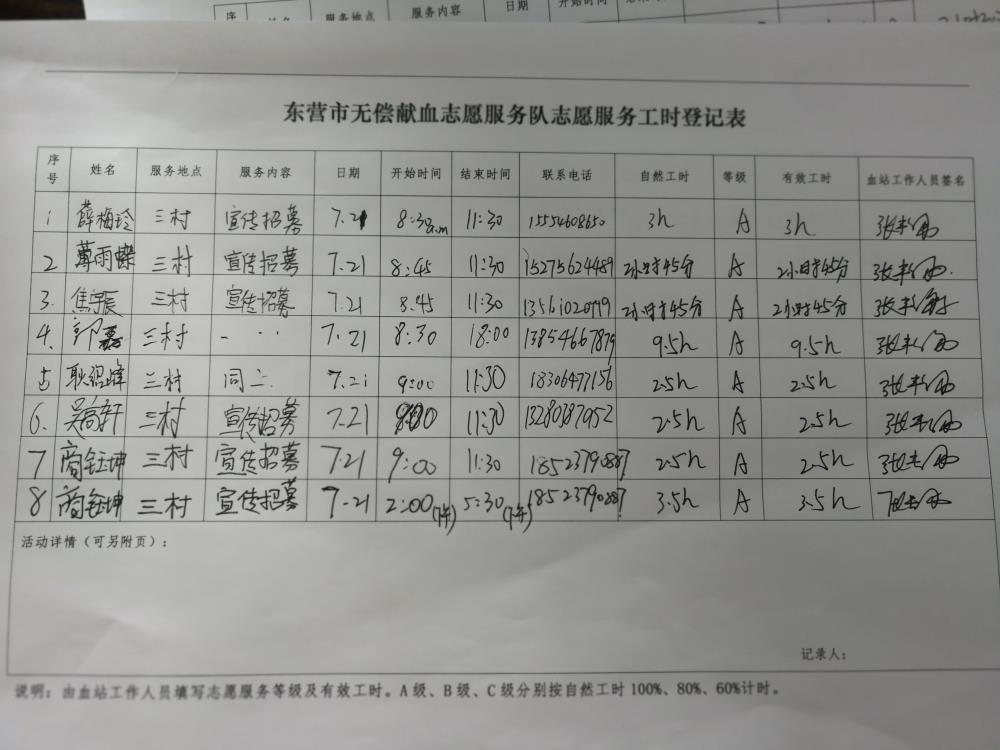 服务地点 服务内容 日期 开始时间
东营市无偿献血志愿服务队志愿服务工时登记表
序号 姓名 服务地点 服务内容 日期 开始时间 结束时间 联系电话 自然工时 等级 有效工时 血站工作人员签名
1 薛梅玲 三村 宣传招募 7.21 8:30a.m 11:30 15554608650 3h A 3h
2 三村 宣传招募 7.21 8:45 11:30 15275624489 2小时45分 A 2小时45分
3. 焦宇辰 三村 宣传招募 7.21 8:45 11:30 2小时45分 A 2小时45分
4. 郭磊 三村 - · · 7.21 8:30 18:00 13854667879 9.5h A 9.5h
5 耿绍峰 三村 同上 7.21 9:00 11:30 18306477156 2.5h A 2.5h
6. 吴高轩 三村 宣传招募 7.21 11:30 13280387952 2.5h A 2.5h
7 商钰坤 三村 宣传招募 7.21 9:00 11:30 18523790887 2.5h A 2.5h
8 商钰坤 三村 宣传招募 7.21 2:00(下午) 5:30(下午) 18523790887 3.5h A 3.5h
活动详情（可另附页）：
记录人：
说明：由血站工作人员填写志愿服务等级及有效工时。A级、B级、C级分别按自然工时100%、80%、60%计时。